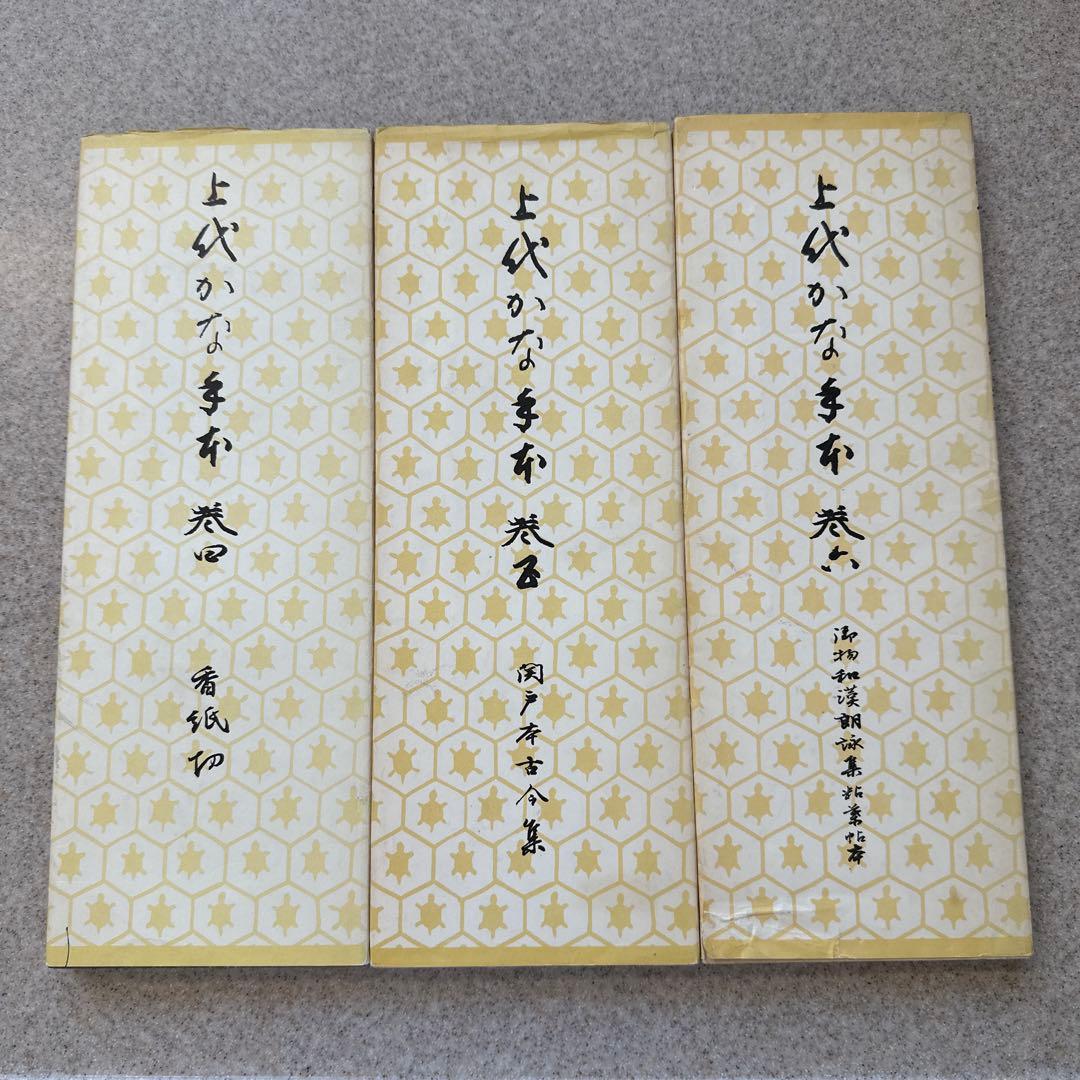 上代かな手本 巻四
香紙切
上代かな手本 巻五
関戸本古今集
上代かな手本 巻六
御物和漢朗詠集粘葉帖本